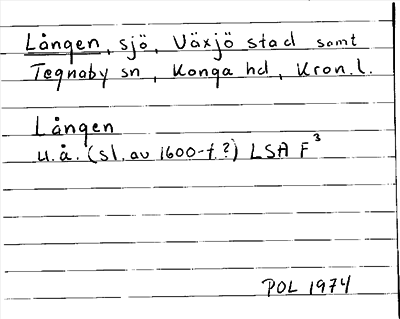 Lången, sjö, Växjö stad samt
Tegnaby sn, Konga hd, Kron.l.
Lången
u.å. (sl. av 1600-t.?) LSA F³
POL 1974